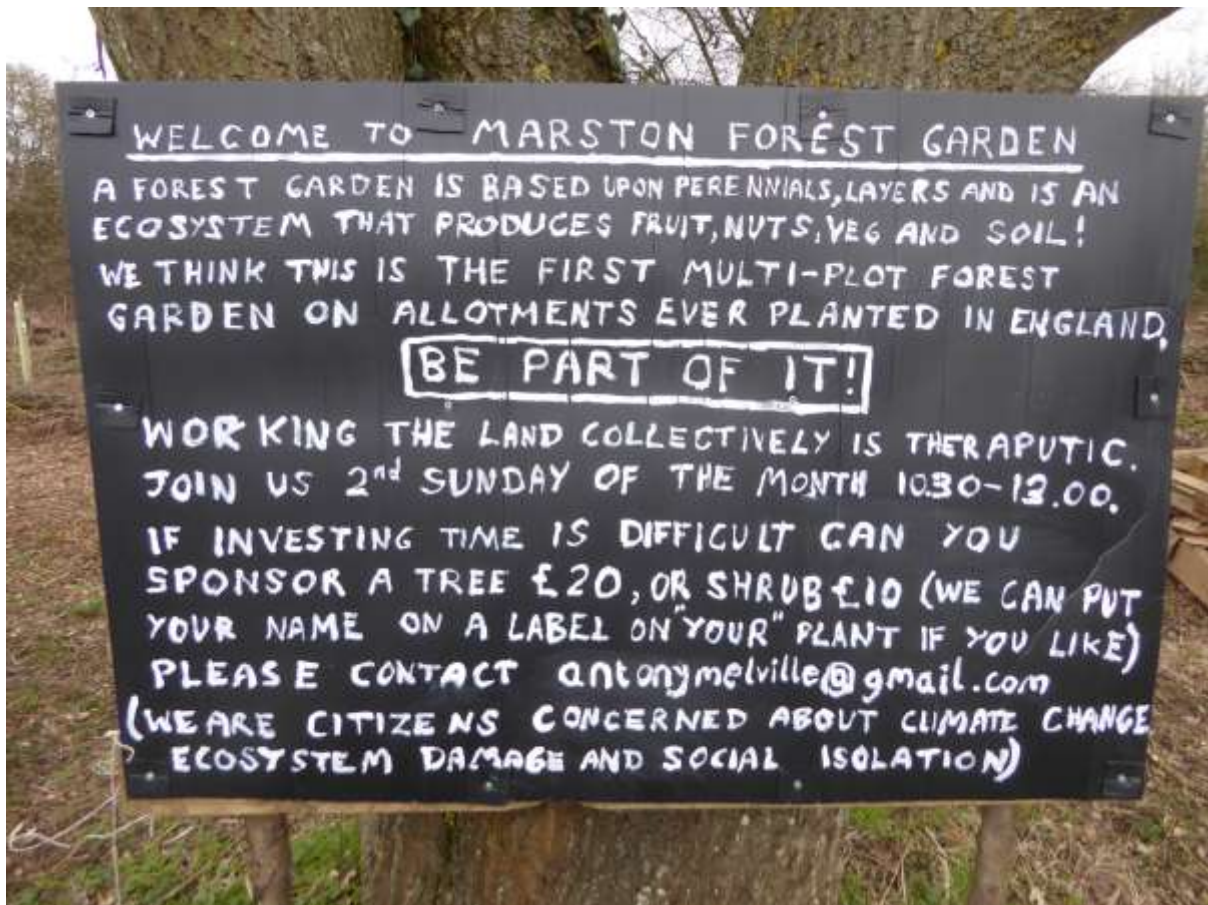 WELCOME TO MARSTON FOREST GARDEN
A FOREST GARDEN IS BASED UPON PERENNIALS, LAYERS AND IS AN
ECOSYSTEM THAT PRODUCES FRUIT, NUTS, VEG AND SOIL!
WE THINK THIS IS THE FIRST MULTI-PLOT FOREST
GARDEN ON ALLOTMENTS EVER PLANTED IN ENGLAND,
BE PART OF IT!
WORKING THE LAND COLLECTIVELY IS THERAPUTIC.
JOIN US 2nd SUNDAY OF THE MONTH 10.30-13.00.
IF INVESTING TIME IS DIFFICULT CAN YOU
SPONSOR A TREE £20, OR SHRUB £10 (WE CAN PUT
YOUR NAME ON A LABEL ON "YOUR" PLANT IF YOU LIKE)
PLEASE CONTACT antonymelville@gmail.com
(WE ARE CITIZENS CONCERNED ABOUT CLIMATE CHANGE
ECOSYSTEM DAMAGE AND SOCIAL ISOLATION)